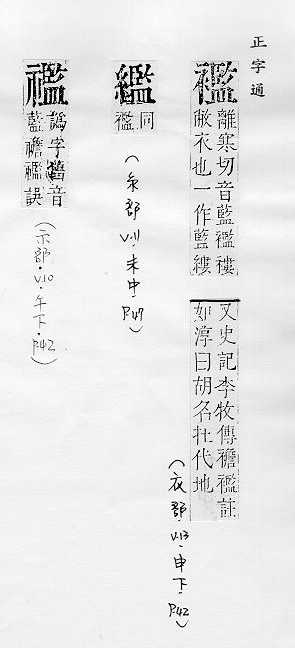 正字通
襤
離寒切音藍襤褸
敝衣也一作藍縷
又史記李牧傳襜襤註
如淳曰胡名在代地
(衣部·V.13·申下·P.42)
繿
同
襤
(糸部·V.11·未中·P.47)
𥜓
譌字舊音
藍襜襤誤
(示部·V.10·午下·P.42)